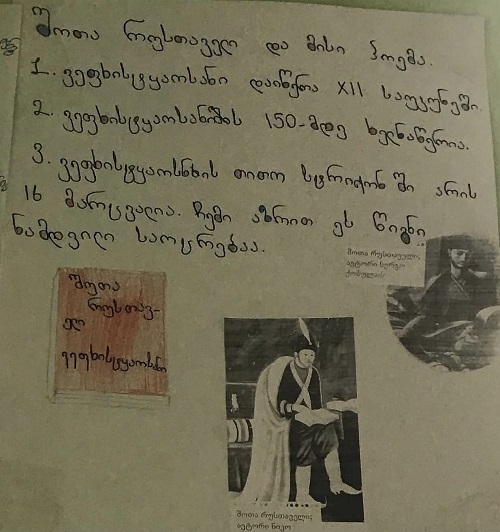 შოთა რუსთაველი და მისი პოემა.
1. ვეფხისტყაოსანი დაიწერა XII საუკუნეში.
2. ვეფხისტყაოსანის 150-მდე ხელნაწერია.
3. ვეფხისტყაოსნის თითო სტრიქონში არის
16 მარცვალია. ჩემი აზრით ეს წიგნი
ნამდვილი საოცრებაა.
შოთა რუსთაველი;
ავტორი სერგო
ქობულაძე
შოთა
რუსთავ-
ელი
ვეფხისტყაოსანი
შოთა რუსთაველი;
ავტორი ნიკო